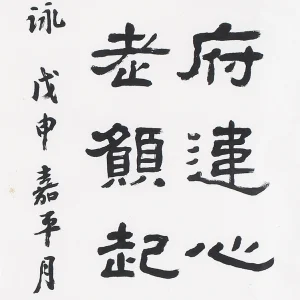 府建心
老顏起
詠戊申嘉平月